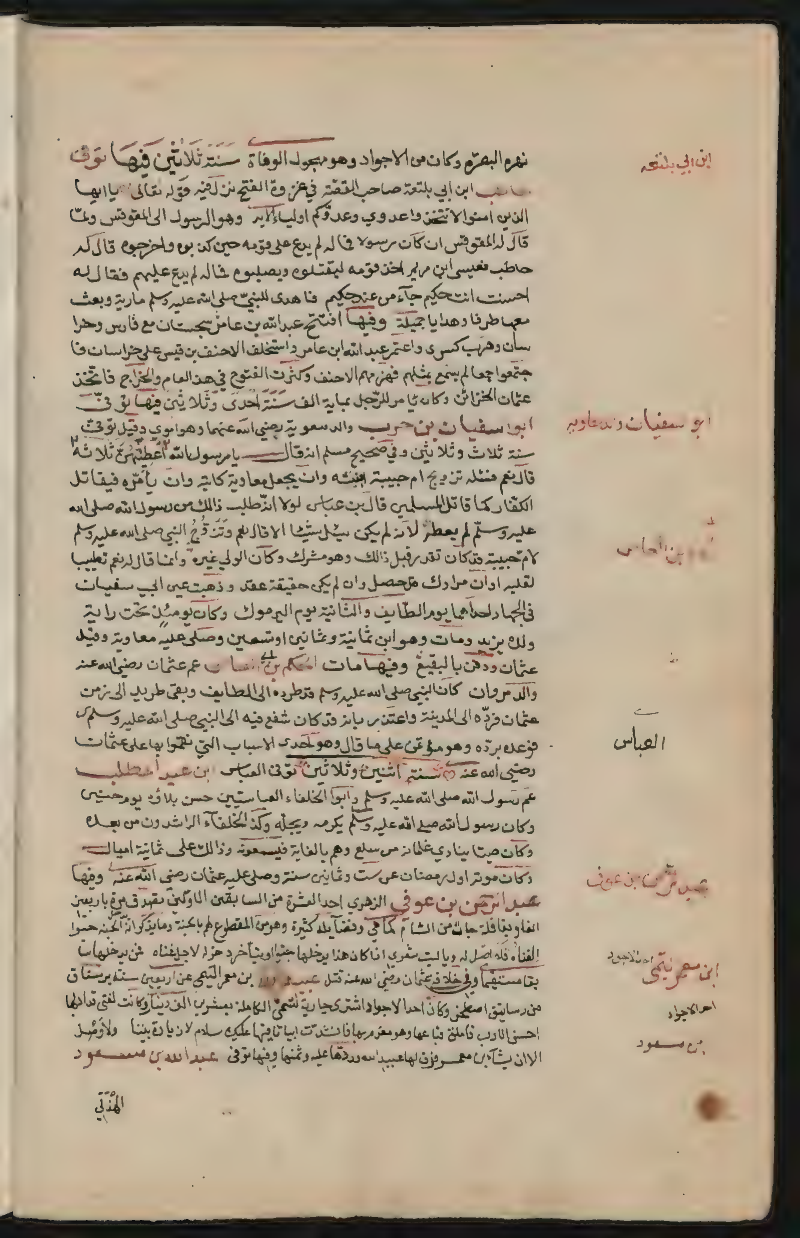 نهره البصرة وكان من الاجواد وهو مجهول الوفاة سنة ثلاثين فيها توفى
ابن ابي بلتعه
ابن ابي بلتعة صاحب القصة في غزوة الفتح نزلت فيه قوله تعالى يا ايها
الذين امنوا لا تتخذوا عدوي وعدوكم اولياء الاية وهو الرسول الى المقوقس ولما
قال له المقوقس ان كان رسولا فما له لم يدع على قومه حين كذبوه واخرجوه قال له
حاطب فعيسى ابن مريم اخذ قومه ليقتلوه ويصلبوه فما له لم يدع عليهم فقال له
احسنت انت حكيم جاء من عند حكيم فاهدى للنبي صلى الله عليه وسلم مارية وبعث
معها طرفا وهدايا جميلة وفيها افتتح عبد الله بن عامر سجستان مع فارس وخرا
سان وهرب كسرى واعتمر عبد الله ابن عامر واستخلف الاحنف بن قيس على خراسان فا
جتمعوا جمعا لم يسمع بمثله فهزمهم الاحنف وكثرت الفتوح في هذا العام والخراج فاتخذ
عثمان الخزائن وكان يامر للرجل بماية الف سنة احدى وثلاثين فيها توفى
ابو سفيان والد معاوية
ابو سفيان بن حرب والد معوية رضي الله عنهما وهو اموي وقيل توفى
سنة ثلاث وثلاثين وفي صحيح مسلم انه قال يا رسول الله اعطنى ثلاثة
قال نعم فسئله تزويج ام حبيبة ابنته وان يجعل معاوية كاتبه وان يأمره فيقاتل
الكفار كما قاتل المسلمين قال بن عباس لولا انه طلب ذالك من رسول الله صلى الله
عليه وسلم لم يعطه لانه لم يكن يسئل شيئا الا قال نعم وتزوج النبي صلى الله عليه وسلم
بن العاص
لام حبيبة قد كان تقدم قبل ذالك وهو مشرك وكان الولي غيره وانما قال له نعم تطييبا
لقلبه او ان مرادك حصل وان لم يكن حقيقة عقد وذهبت عين ابي سفيان
في الجهاد احداهما يوم الطايف والثانية يوم اليرموك وكان يومئذ تحت راية
ولده يزيد ومات وهو ابن ثمانية وثمانين او تسعين وصلى عليه معاوية وقيل
عثمان ودفن بالبقيع وفيها مات الحكم بن ابي العاص عم عثمان رضي الله عنه
والد مروان كان النبي صلى الله عليه وسلم قد طرده الى الطايف وبقى طريد الى زمن
عثمان فرده الى المدينة واعتذر بانه قد كان شفع فيه الى النبي صلى الله عليه وسلم
فوعده برده وهو مؤتمن على ما قال وهو احدى الاسباب التي نقموا بها على عثمان
العباس
رضي الله عنه سنة اثنين وثلاثين توفى العباس ابن عبد المطلب
عم رسول الله صلى الله عليه وسلم وابوا الخلفاء العباسيين حسن بلاؤه يوم حنين
وكان رسول الله صلى الله عليه وسلم يكرمه ويجله وكذ الخلفاء الراشدون من بعده
وكان صيتا ينادي غلمانه من سلع وهم بالغابة فيسمعونه وذالك على ثمانية اميال
وكان موته اول رمضان عن ست وثمانين سنة وصلى عليه عثمان رضي الله عنه وفيها
عبد الرحمن بن عوف
عبد الرحمن بن عوف الزهري احد العشرة من السابقين الاولين تصدق مرة باربعين
الفا وبقافلة جاءت من الشام كما هي وفضايله كثيرة وهو من المقطوع لهم بالجنة وما يذكر انه يدخل الجنة حبوا
لغناه فلا اصل له ويا ليت شعري اذا كان هذا يدخلها حبوا ويتأخر دخوله لاجل غناه فمن يدخلها سا
ابن معمر تيمي احد الاجواد
بقا مستقيما وفي خلافة عثمان رضي الله عنه قتل بن معمر التيمي عن اربعين سنة برستاق
من رساتيق اصطخر وكان احد الاجواد اشترى جارية تسمى الكاملة بعشرين الف دينار وكانت لفتى قد ادبها
احد الاجواد
احسن الادب فاملق فباعها وهو مغرم بها فانشدت ابياتا فيها عليك سلام لا زيارة بيننا ولا وصل
بن مسعود
الا ان يشاء بن معمر فرق لها عبيد الله وردها عليه وثمنها وفيها توفى عبد الله بن مسعود
الهذلي